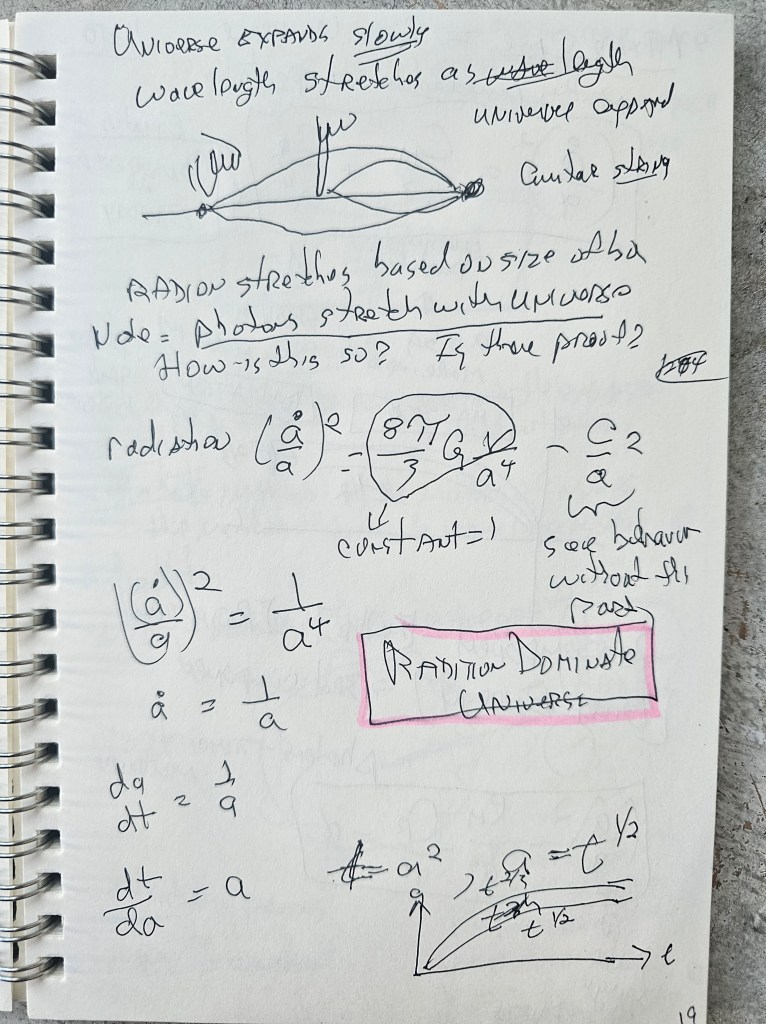 UNIVERSE EXPANDS slowly
wavelength stretches as length
universe expand
Guitar string
RADION stretches based on size of box
Node = photons stretch with UNIVERSE
How is this so? Is there proof?
radiation (ȧ/a)² = 8π/3 G ν/a⁴ - C/a²
CONSTANT = 1
see behavior
without this
part
(ȧ/a)² = 1/a⁴
RADITION DOMINATE
UNIVERSE
ȧ = 1/a
da/dt = 1/a
dt/da = a
t = a², a = t^1/2
a
t^2/3
t^1/2
t
19